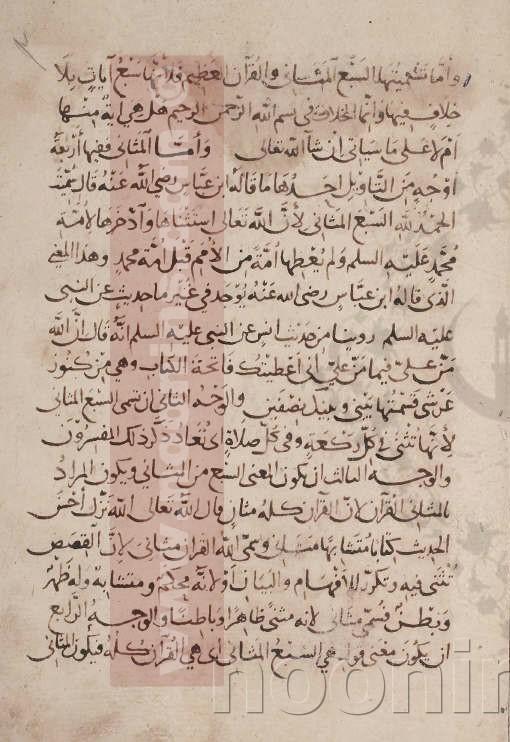 وأما تسميتها السبع المثاني والقرآن العظيم فلأنها سبع آيات بلا
خلاف فيها وإنما الخلاف في بسم الله الرحمن الرحيم هل هي آية منها
أم لا على ما سيأتي إن شاء الله تعالى وأما المثاني ففيها أربعة
أوجه من التأويل أحدها ما قاله ابن عباس رضي الله عنه قال سميت
الحمد لله السبع المثاني لأن الله تعالى استثناها وادخرها لأمة
محمد عليه السلم ولم يعطها أمة من الأمم قبل أمة محمد وهذا المعنى
الذي قاله ابن عباس رضي الله عنه يوجد في غير ما حديث عن النبي
عليه السلم روينا من حديث أنس عن النبي عليه السلم أنه قال إن الله
من علي فيما من علي أني أعطيتك فاتحة الكتاب وهي من كنوز
عرشي قسمتها بيني وبينك نصفين والوجه الثاني أن تسمى السبع المثاني
لأنها تثنى في كل ركعة وفي كل صلاة أي تعاد ذكر ذلك المفسرون
والوجه الثالث أن يكون المعنى السبع من المثاني ويكون المراد
بالمثاني القرآن لأن القرآن كله مثان قال الله تعالى الله نزل أحسن
الحديث كتابا متشابها مثاني وسمى الله القرآن مثاني لأن القصص
تثنى فيه وتكرر للإفهام والبيان أو لأنه محكم ومتشابه وله ظهر
وبطن فسمي مثاني لأنه مثنى ظاهرا وباطنا والوجه الرابع
أن يكون معنى قوله هي السبع المثاني أي هي القرآن كله فيكون المثاني
noorin